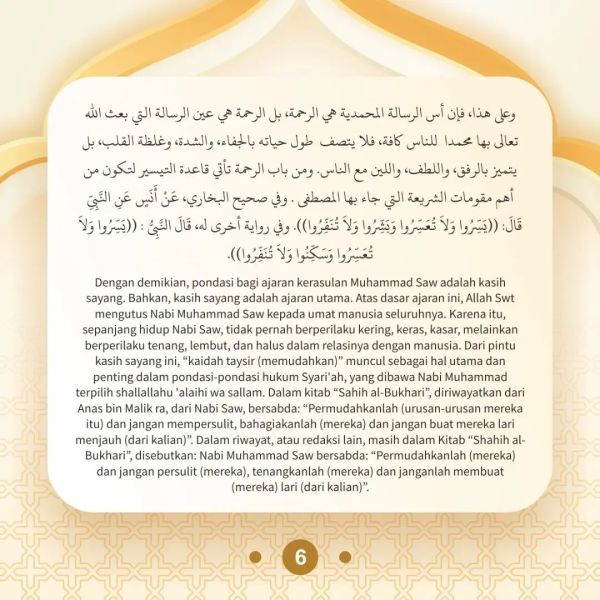 وعلى هذا، فإن أس الرسالة المحمدية هي الرحمة، بل الرحمة هي عين الرسالة التي بعث الله
تعالى بها محمدا للناس كافة، فلا يتصف طول حياته بالجفاء، والشدة، وغلظة القلب، بل
يتميز بالرفق، واللطف، واللين مع الناس. ومن باب الرحمة تأتي قاعدة التيسير لتكون من
أهم مقومات الشريعة التي جاء بها المصطفى . وفي صحيح البخاري، عَنْ أَنَسٍ عَنِ النَّبِيِّ
قَالَ: ((يَسِّرُوا وَلاَ تُعَسِّرُوا وَبَشِّرُوا وَلاَ تُنَفِّرُوا)). وفي رواية أخرى له، قَالَ النَّبِيُّ : ((يَسِّرُوا وَلاَ
تُعَسِّرُوا وَسَكِّنُوا وَلاَ تُنَفِّرُوا)).
Dengan demikian, pondasi bagi ajaran kerasulan Muhammad Saw adalah kasih
sayang. Bahkan, kasih sayang adalah ajaran utama. Atas dasar ajaran ini, Allah Swt
mengutus Nabi Muhammad Saw kepada umat manusia seluruhnya. Karena itu,
sepanjang hidup Nabi Saw, tidak pernah berperilaku kering, keras, kasar, melainkan
berperilaku tenang, lembut, dan halus dalam relasinya dengan manusia. Dari pintu
kasih sayang ini, “kaidah taysir (memudahkan)” muncul sebagai hal utama dan
penting dalam pondasi-pondasi hukum Syari'ah, yang dibawa Nabi Muhammad
terpilih shallallahu 'alaihi wa sallam. Dalam kitab “Sahih al-Bukhari”, diriwayatkan dari
Anas bin Malik ra, dari Nabi Saw, bersabda: “Permudahkanlah (urusan-urusan mereka
itu) dan jangan mempersulit, bahagiakanlah (mereka) dan jangan buat mereka lari
menjauh (dari kalian)”. Dalam riwayat, atau redaksi lain, masih dalam Kitab “Shahih al-
Bukhari”, disebutkan: Nabi Muhammad Saw bersabda: “Permudahkanlah (mereka)
dan jangan persulit (mereka), tenangkanlah (mereka) dan janganlah membuat
(mereka) lari (dari kalian)”.
6